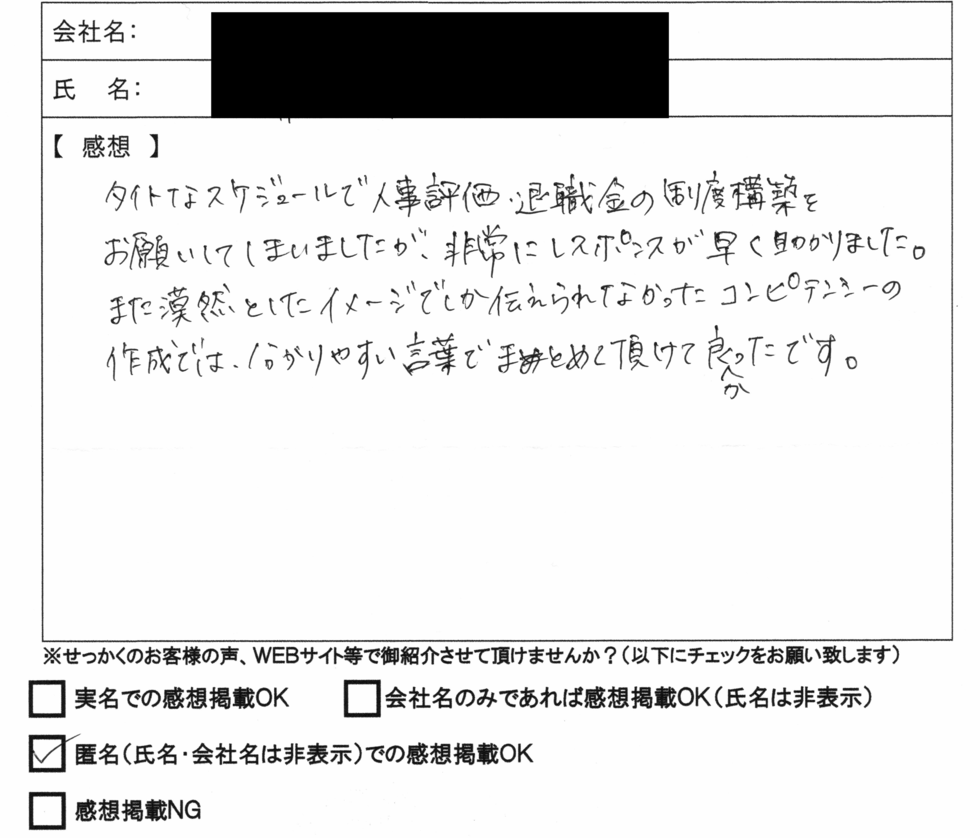 会社名:
氏　名:
【 感想 】
タイトなスケジュールで人事評価・退職金の制度構築を
お願いしてしまいましたが、非常にレスポンスが早く助かりました。
また漠然としたイメージでしか伝えられなかったコンピテンシーの
作成では、分かりやすい言葉でまとめて頂けて良かったです。
※せっかくのお客様の声、WEBサイト等で御紹介させて頂けませんか?(以下にチェックをお願い致します)
実名での感想掲載OK　会社名のみであれば感想掲載OK(氏名は非表示)
匿名(氏名・会社名は非表示)での感想掲載OK
感想掲載NG